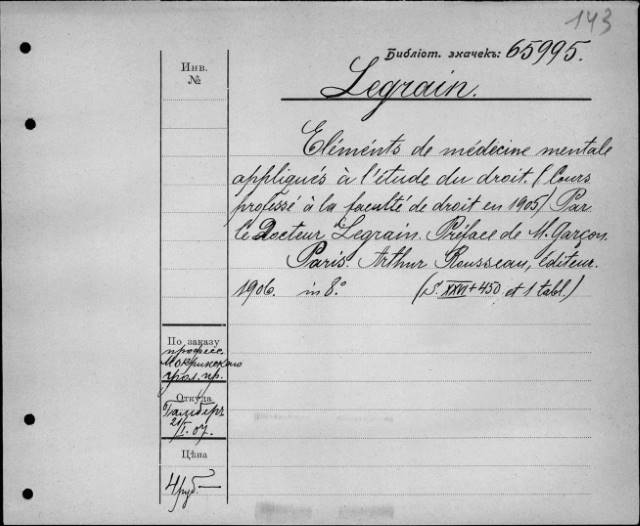 143
Библіот. значекъ: 65995.
Инв.
№
Legrain.
Eléments de médecine mentale
appliqués à l'étude du droit. (Cours
professé à la faculté de droit en 1905) Par
le Docteur Legrain. Préface de M. Garçon.
Paris. Arthur Rousseau, Editeur.
1906. in 8.° (S. XXVI + 450 et 1 tabl.)
По заказу
професс.
Мокринскаго
угол. пр.
Откуда
21/I. 07.
Цѣна
4 руб. —